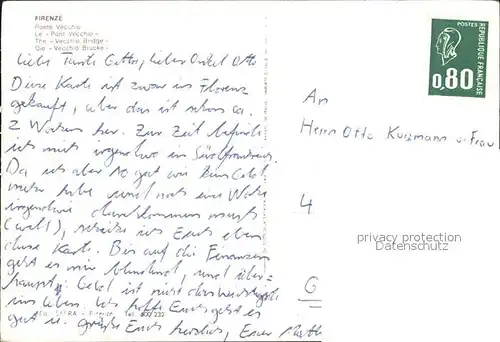 FIRENZE
Ponte Vecchio
Le « Pont Vecchio »
The « Vecchio Bridge »
Die « Vecchio Brücke »
Liebe Tante, lieber Onkel Otto
Diese Karte ist zwar in Florenz
gekauft, aber das ist schon ca.
2 Wochen her. Zur Zeit befinde
ich mich irgendwo in Südfrankreich.
Da ich aber so gut wie kein Geld
mehr habe und noch eine Woche
irgendwie durchkommen muß
schreibe ich Euch eben
diese Karte. Bis auf die Finanzen
geht es mir blendend, und über-
haupt: Geld ist nicht das
im Leben. Ich hoffe Euch geht es
gut u. grüße Euch herzlich, Euer
SAFRA - Firenze Tel. 600/232
POSTES
REPUBLIQUE FRANÇAISE
0,80
An
Herrn Otto Kurzmann u. Frau
4
privacy protection
Datenschutz
G